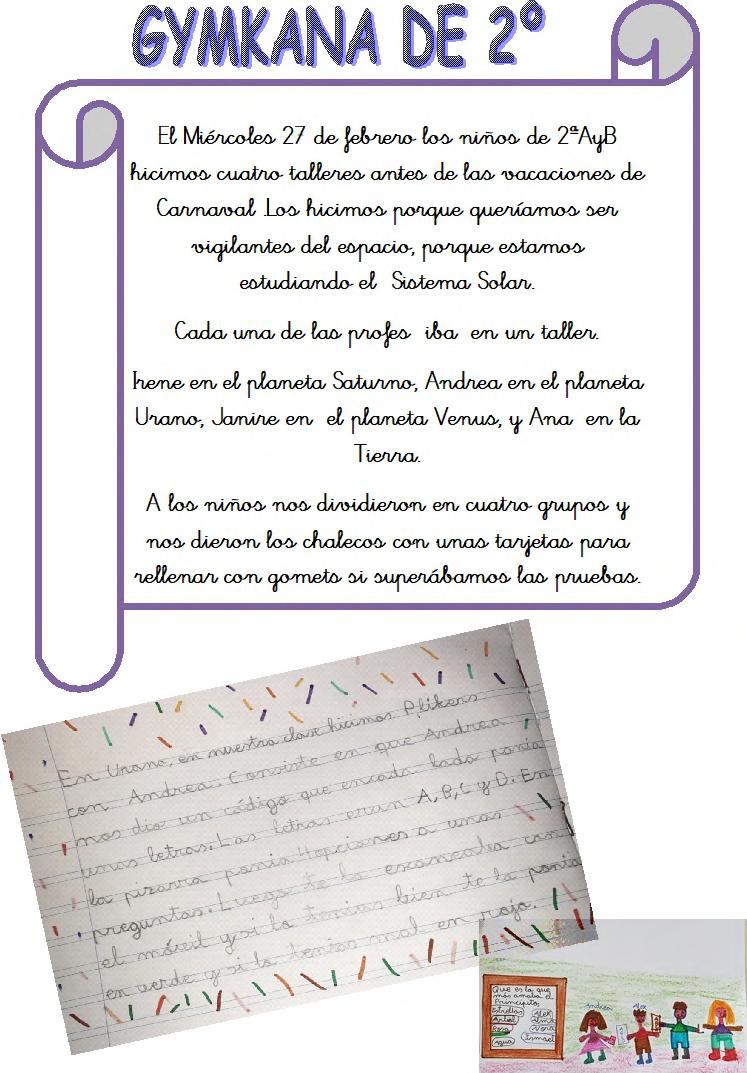 GYMKANA DE 2º
El Miércoles 27 de febrero los niños de 2ªAyB
hicimos cuatro talleres antes de las vacaciones de
Carnaval .Los hicimos porque queríamos ser
vigilantes del espacio, porque estamos
estudiando el Sistema Solar.
Cada una de las profes iba en un taller.
Irene en el planeta Saturno, Andrea en el planeta
Urano, Janire en el planeta Venus, y Ana en la
Tierra.
A los niños nos dividieron en cuatro grupos y
nos dieron los chalecos con unas tarjetas para
rellenar con gomets si superábamos las pruebas.
En Urano, en nuestra clase hicimos Plikers
con Andrea. Consiste en que Andrea
nos dio un código que encada lado ponia
unas letras. Las letras eran A, B, C y D. En
la pizarra ponia 4 opciones a unas
preguntas. Luego te lo escaneaba con
el móvil y si lo tenias bien te lo ponia
en verde y si lo tenias mal en rojo.
Que es lo que
más amaba el
Principito
Estrellas
Alex
Arbol
Rosa
Vera
Agua
Ismael
Andrea
Alex